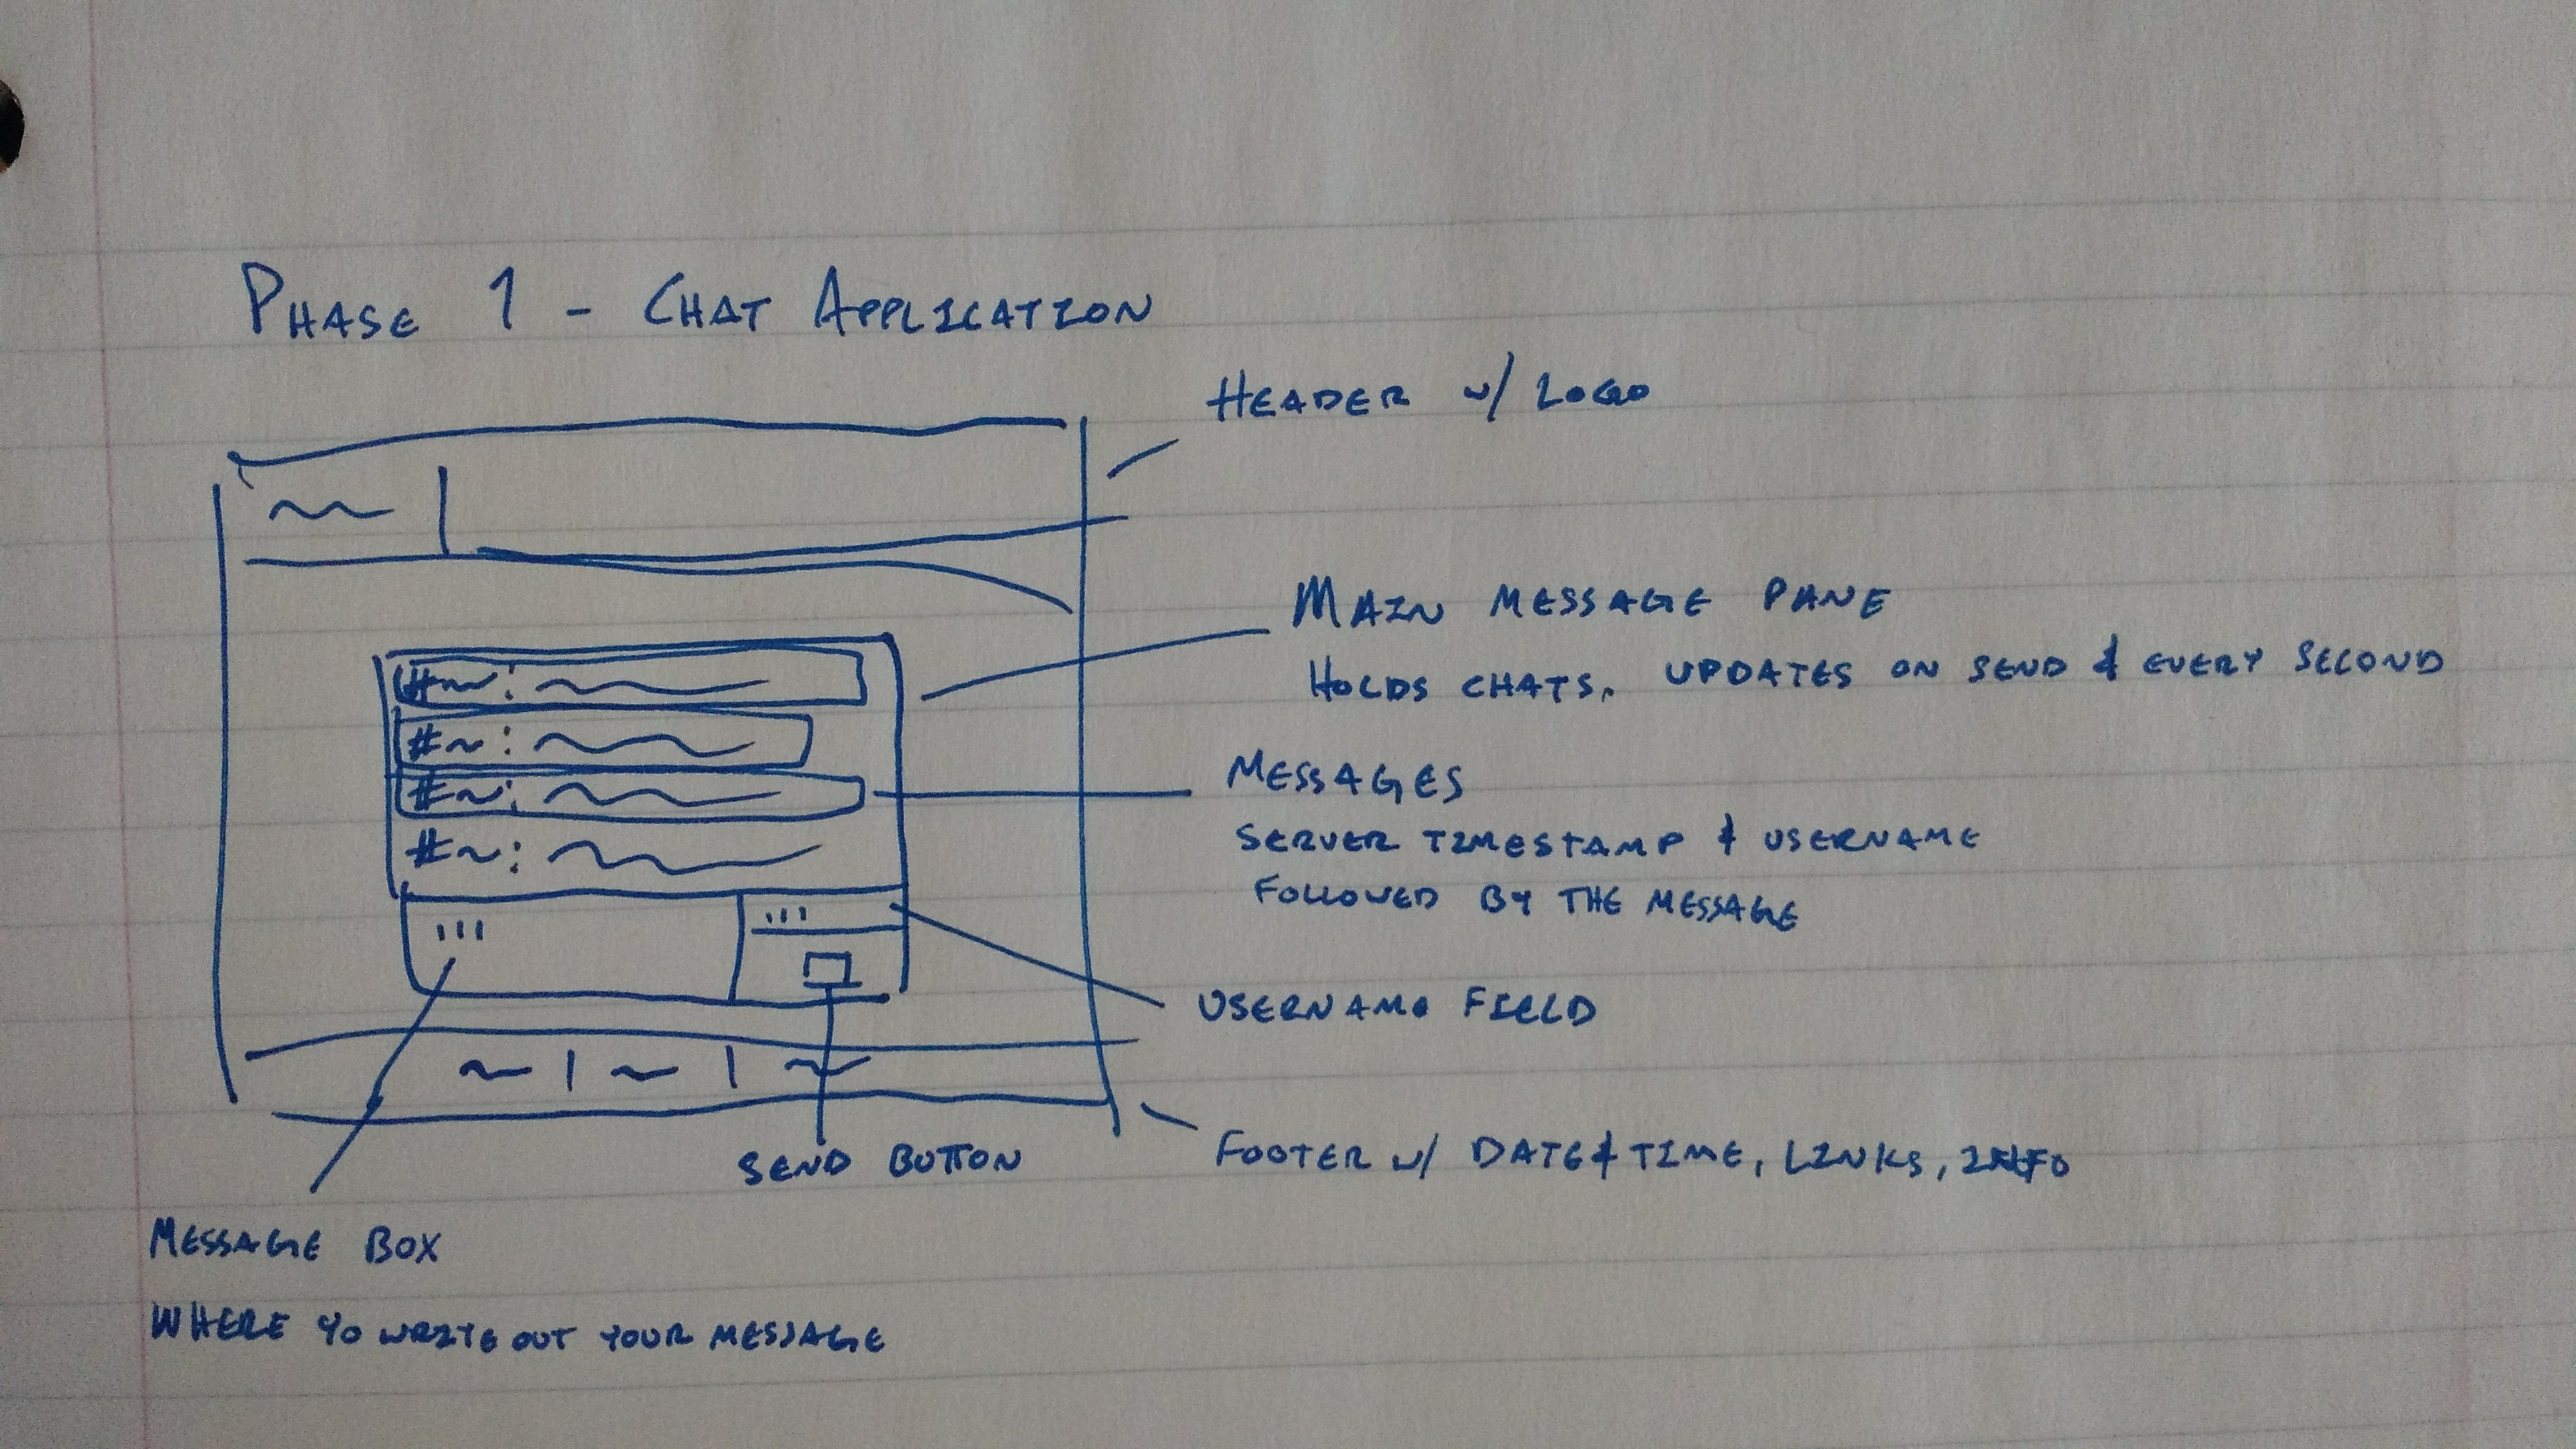 PHASE 1 - CHAT APPLICATION
HEADER w/ LOGO
MAIN MESSAGE PANE
HOLDS CHATS. UPDATES ON SEND & EVERY SECOND
#~:
#~:
#~:
#~:
MESSAGES
SERVER TIMESTAMP & USERNAME
FOLLOWED BY THE MESSAGE
USERNAME FIELD
SEND BUTTON
FOOTER w/ DATE & TIME, LINKS, INFO
MESSAGE BOX
WHERE YO WRITE OUT YOUR MESSAGE